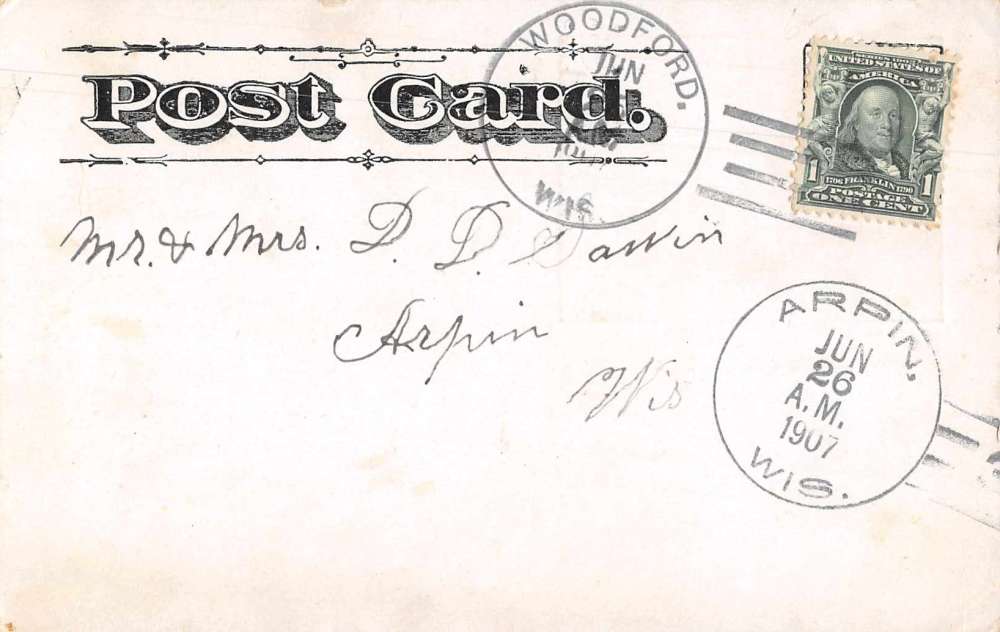 Post Card.
WOODFORD.
JUN
WIS.
UNITED STATES OF
AMERICA
1 1706 FRANKLIN 1790 1
POSTAGE
ONE CENT
Mr. & Mrs. D. D.
Arpin
Wis
ARPIN,
JUN
26
A.M.
1907
WIS.